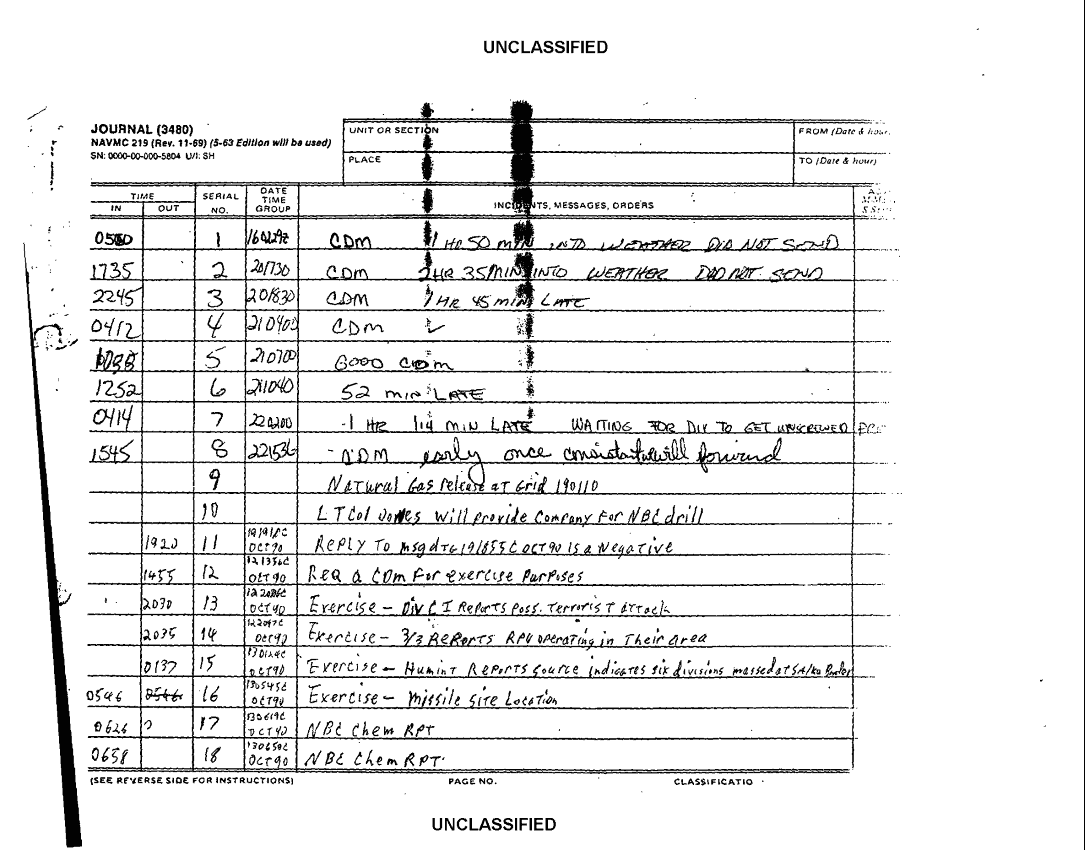 UNCLASSIFIED
JOURNAL (3480)
NAVMC 219 (Rev. 11-69) (5-63 Edition will be used)
SN: 0000-00-000-5804 U/I: SH
UNIT OR SECTION
FROM (Date & hour
PLACE
TO (Date & hour)
TIME
IN OUT
SERIAL NO.
DATE TIME GROUP
INCIDENTS, MESSAGES, ORDERS
1 CDM 1 HR 50 MIN INTO WEATHER DID NOT SEND
1735 2 201730 CDM 2HR 35MIN INTO WEATHER DID NOT SEND
2245 3 201830 CDM 1 HR 45 MIN LATE
0412 4 210400 CDM ✓
5 210700 GOOD CDM
1252 6 211040 52 MIN LATE
0414 7 220200 -1 HR 14 MIN LATE WAITING FOR DIV TO GET UNSCREWED
1545 8 221536 - CDM early once will forward
9 Natural Gas release at Grid 190110
10 LTCol Jones will provide Company For NBC drill
1920 11 OCT90 REPLY To msg dtg 191855C OCT 90 is a Negative
1455 12 121356C OCT90 Req a CDM For exercise Purposes
2030 13 OCT90 Exercise - Div C I Reports Poss. Terrorist attack
2035 14 OCT90 Exercise - 3/3 Reports RPV operating in Their area
0137 15 OCT90 Exercise - Humint Reports Source indicates six divisions massed at
0546 0546 16 130545C OCT90 Exercise - Missile Site Location
0626 17 130619C OCT90 NBC Chem RPT
0658 18 130650C OCT90 NBC Chem RPT.
(SEE REVERSE SIDE FOR INSTRUCTIONS) PAGE NO. CLASSIFICATIO
UNCLASSIFIED